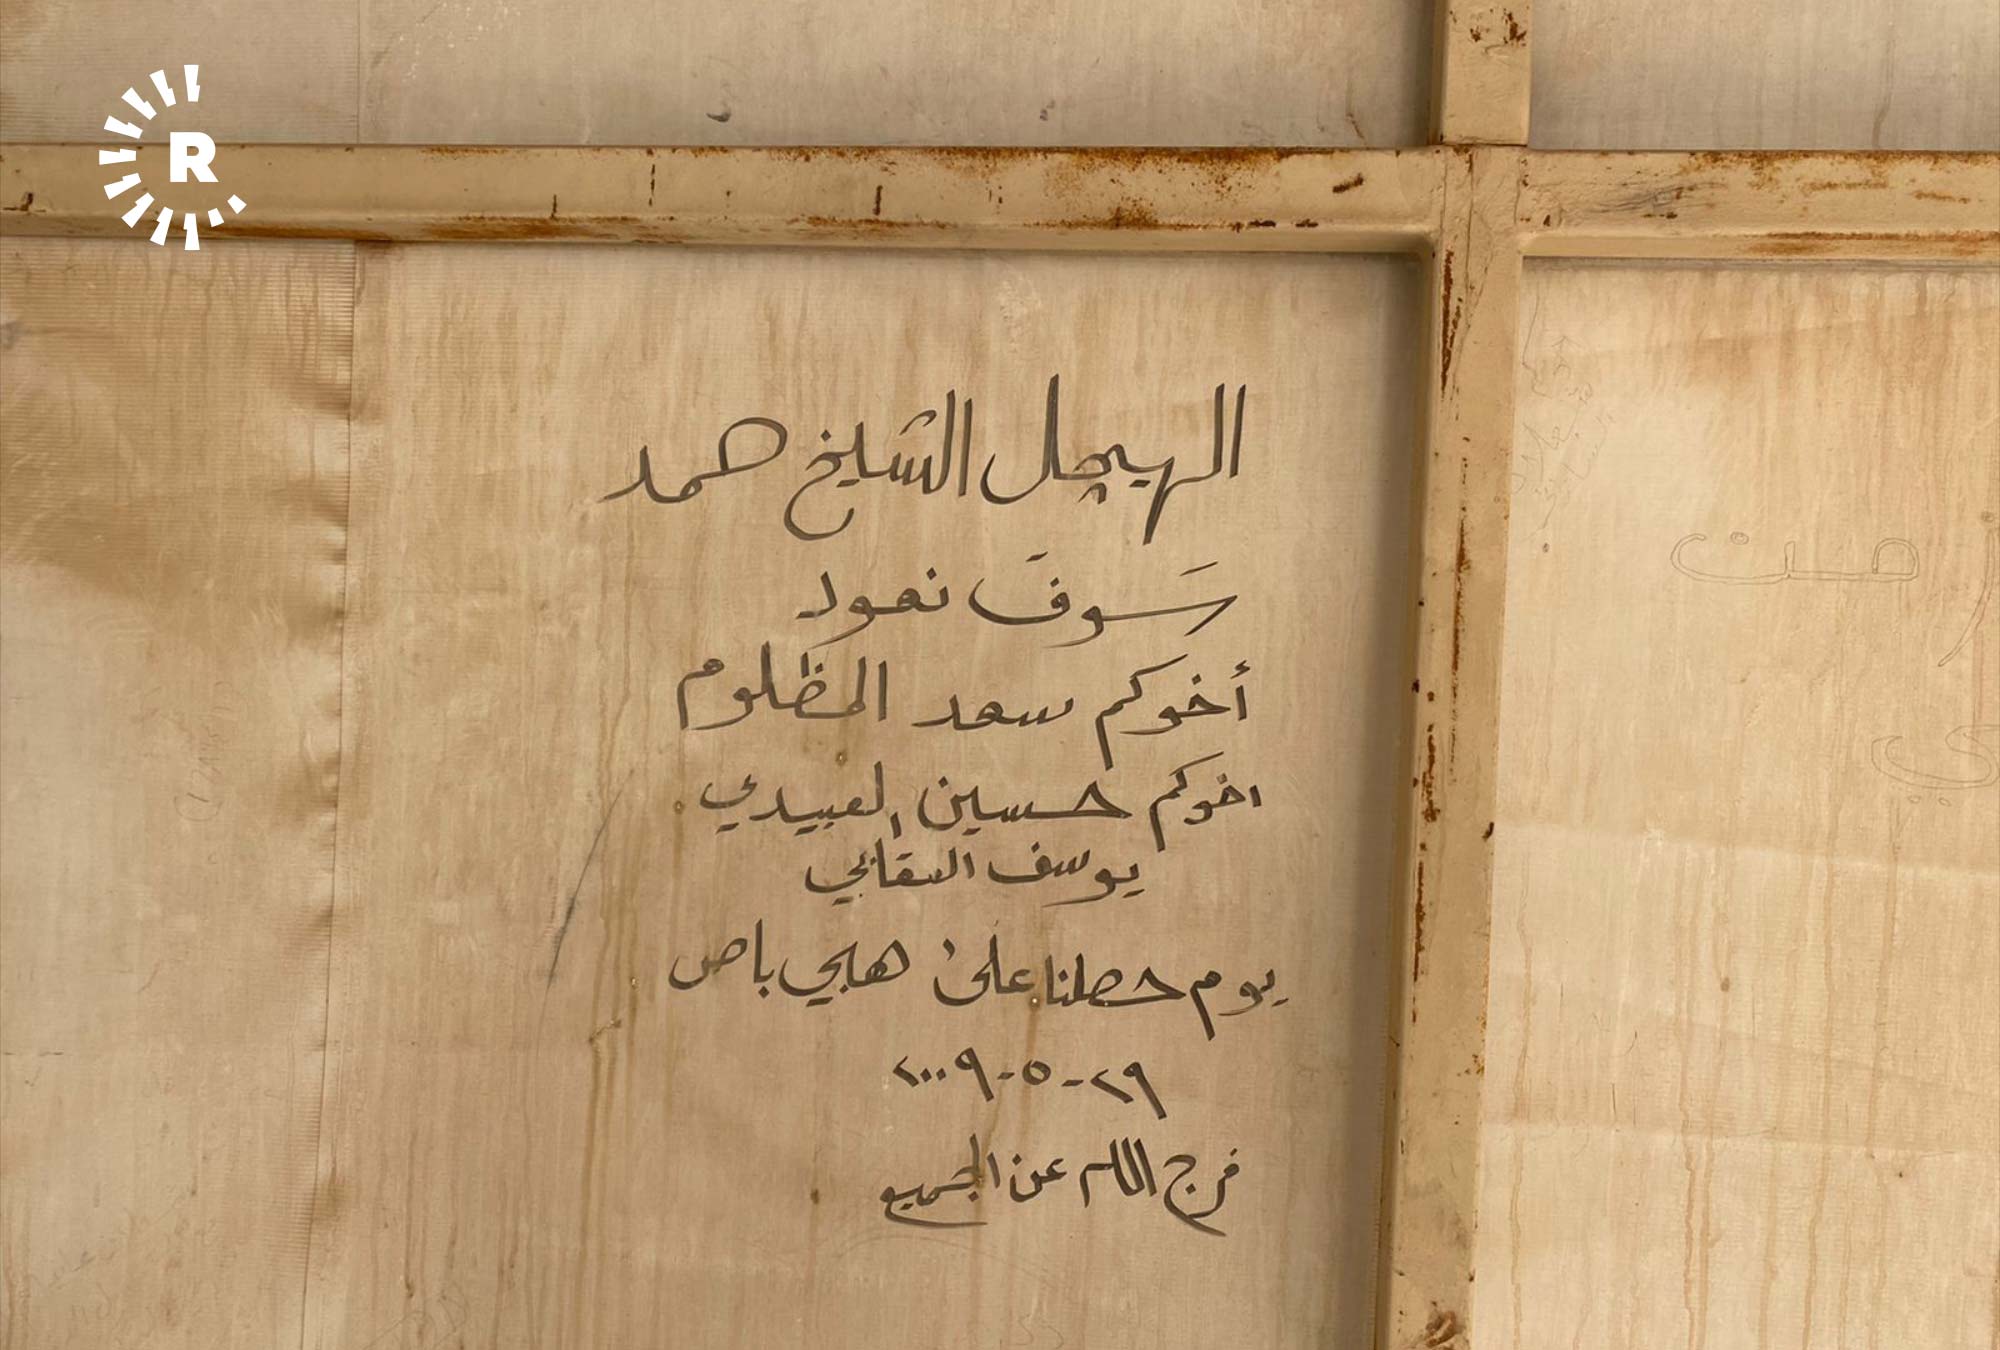 R
الهيچل الشيخ حمد
سَوفَ نعود
أخوكم سعد المظلوم
اخوكم حسين العبيدي
يوسف
يوم حصلنا على هلجي باص
٢٩-٥-٢٠٠٩
فرج الله عن الجميع